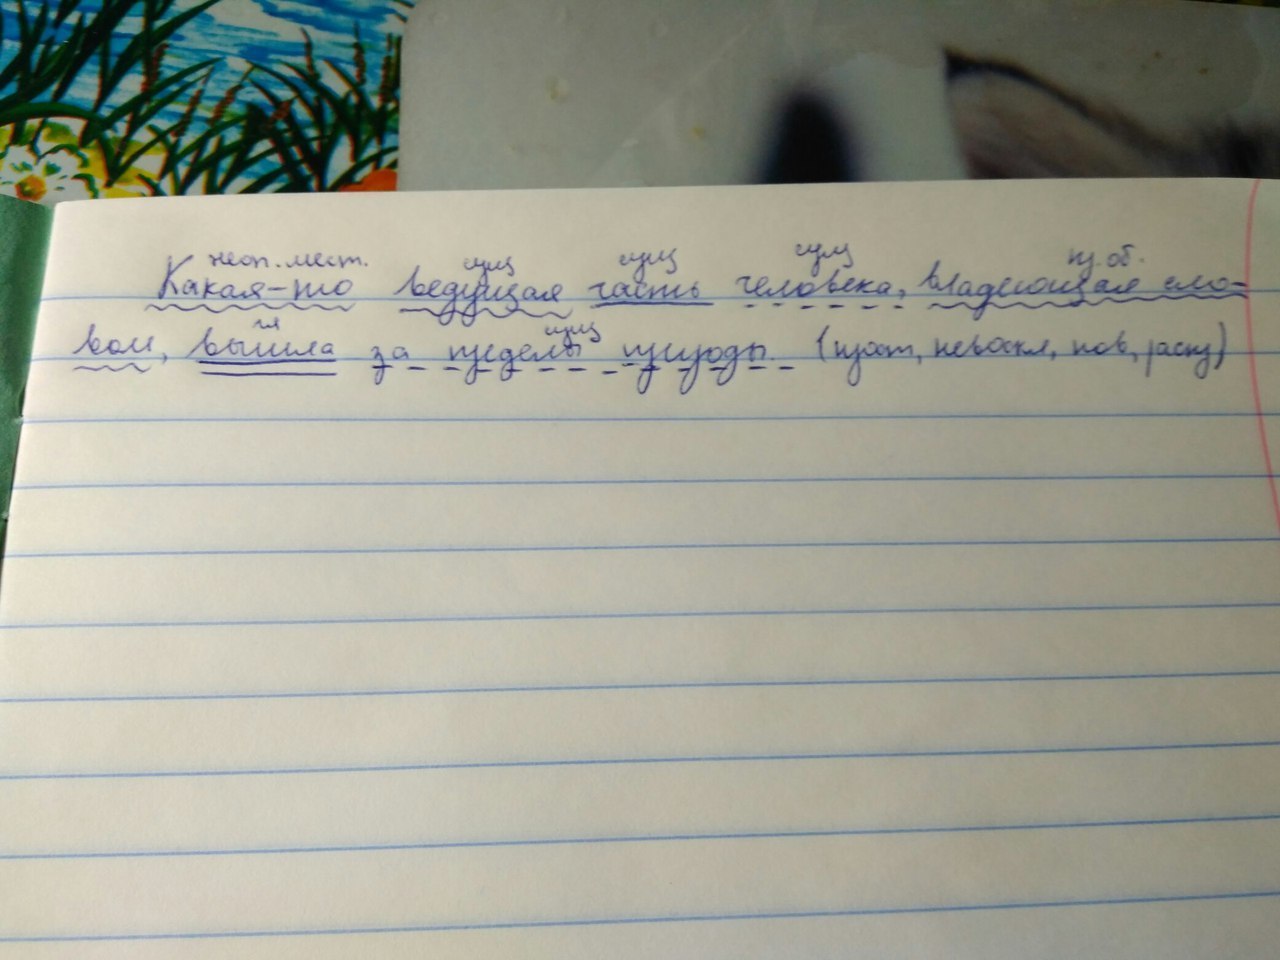 неоп. мест. сущ сущ сущ пр. об.
Какая-то ведущая часть человека, владеющая сло-
гл сущ
вом, вышла за пределы природы. (прост, невоскл, пов, распр)